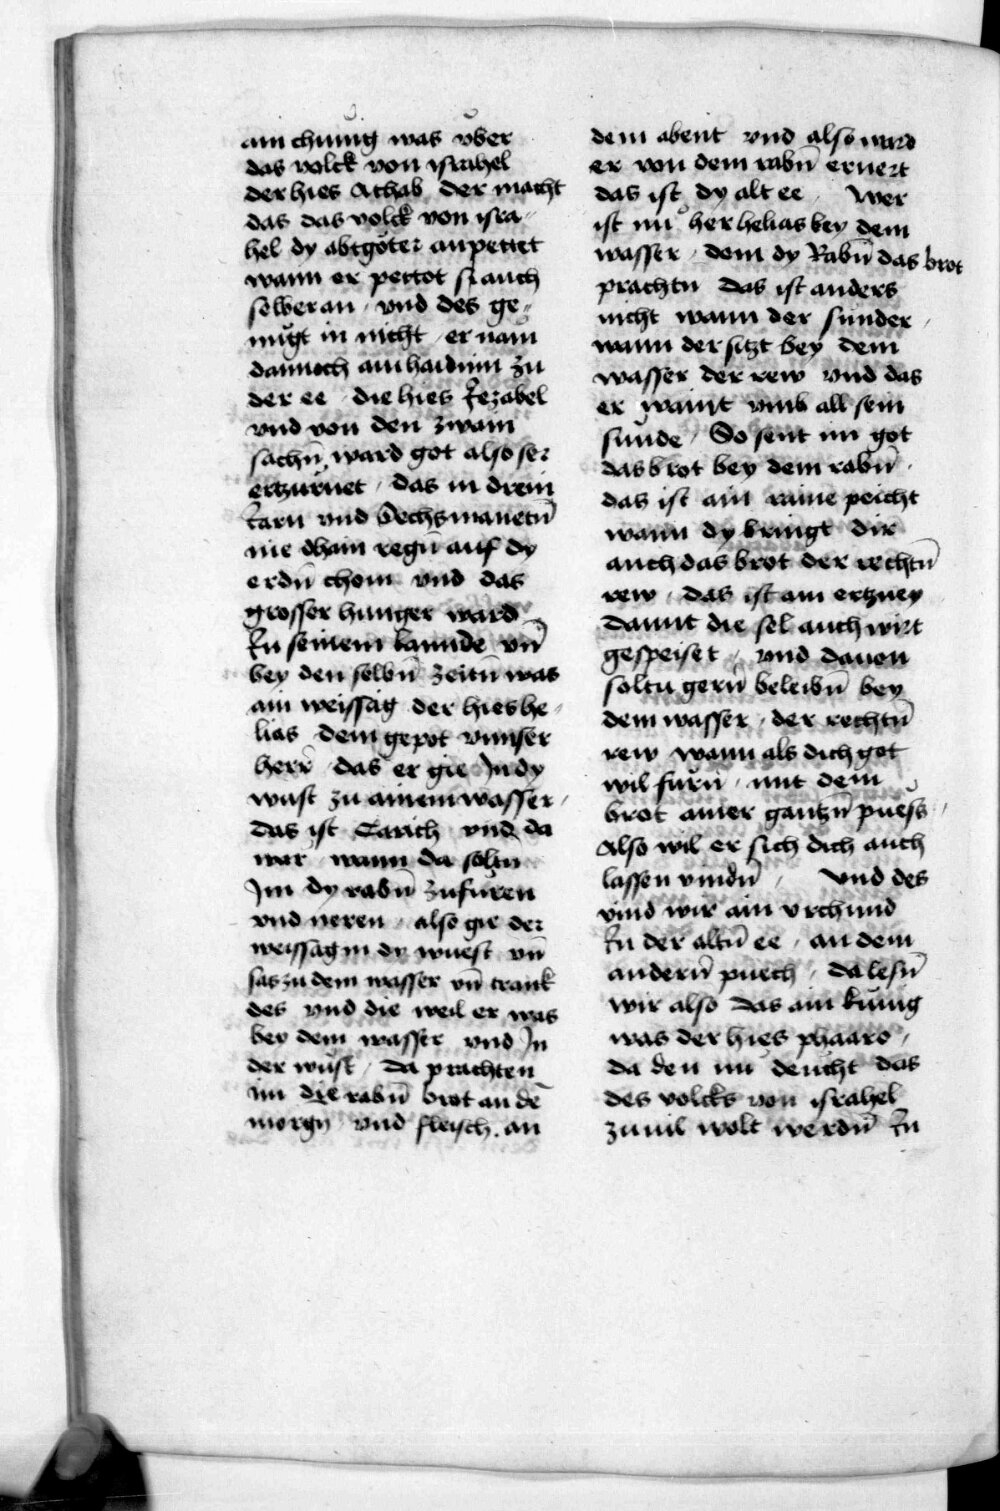 ain chunig was vber
das volck von israhel
der hies Achab der macht
das das volck von isra-
hel dy abtgöter anpettet
wann er pettot si auch
selber an / vnd des ge-
nügt in nicht / er nam
dannoch ain haidnin zu
der ee / die hies Jezabel
vnd von den zwain
sachn̄ ward got also ser
erzürnet / das in drein
Jarn vnd Sechs manetn̄
nie dhain regn̄ auf dy
erdn̄ chom vnd das
grosser hunger ward
Jn seinem lannde vn̄
bey den selbn̄ zeitn̄ was
ain weissag der hies he-
lias dem gepot vnnser
herr̄ das er gie Jn dy
wust zu ainem wasser /
das ist Carich vnd da
wär wann da soltn̄
Jm dy rabn̄ zufüren
vnd neren / also gie der
weissag in dy wuest vn̄
sas zu dem wasser vn̄ trank
des vnd die weil er was
bey dem wasser vnd Jn
der wüst / da prachten
im die rabn̄ brot an dē
morgn̄ vnd fleisch an
dem abent vnd also ward
er von dem rabn̄ ernert
das ist dy alt ee / Wer
ist nu her helias bey dem
wasser / dem dy Rabn̄ das brot
prachtn das ist anders
nicht wann der sünder /
wann der sitzt bey dem
wasser der rew vnd das
er waint vmb all sein
sünde / So sent im got
das brot bey dem rabn̄ /
das ist ain raine peicht
wann dy bringt dir
auch das brot der rechtn̄
rew / das ist ain ertzney
damit die sel auch wirt
gespeiset / vnd dauon
soltu gern̄ beleibn̄ bey
dem wasser / der rechtn̄
rew wann als dich got
wil fürn̄ / mit dem
brot ainer gantzn̄ puess /
also wil er sich dich auch
lassen vindn̄ / Vnd des
vind wir ain vrchund
Jn der altn̄ ee / an dem
andern̄ puech / da lesn̄
wir also das ain künig
was der hies pharo /
da den nu deucht das
des volcks von israhel
zuuil wolt werdn̄ Jn